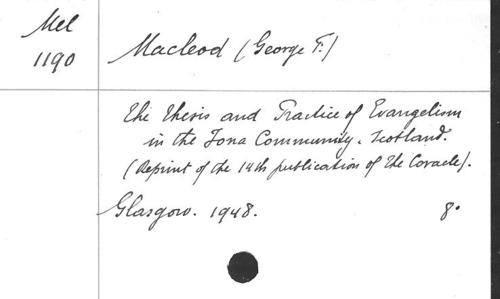 Mel
1190
Macleod (George F.)
The Thesis and Practice of Evangelism
in the Iona Community, Scotland.
(Reprint of the 14th publication of the Coracle).
Glasgow. 1948. 8°